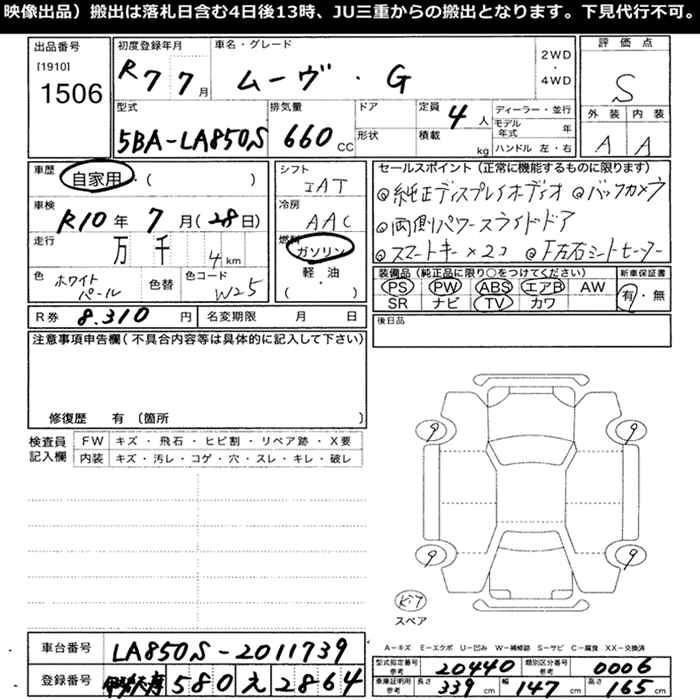 映像出品）搬出は落札日含む4日後13時、JU三重からの搬出となります。下見代行不可。
出品番号
[1910]
1506
初度登録年月
R7 7月
車名・グレード
ムーヴ・G
2WD
・
4WD
評価点
S
外装 内装
A A
型式
5BA-LA850S
排気量
660 CC
ドア
形状
定員 4人
積載 kg
ディーラー・並行
モデル年式 年
ハンドル 左・右
車歴
自家用・( )
車検
R10年7月(28日)
走行
万 千 4km
色
ホワイトパール
色替
色コード
W25
シフト
IAT
冷房
AAC
燃料
ガソリン
軽・油
・
( )
セールスポイント（正常に機能するものに限ります）
◎純正ディスプレイオーディオ ◎バックカメラ
◎両側パワースライドドア
◎スマートキー×2コ ◎F左右シートヒーター
装備品（純正品に限り○をつけてください）
PS PW ABS エアB AW
SR ナビ TV カワ
新車保証書
有・無
後日品
R券 8.310円
名変期限 月 日
注意事項申告欄（不具合内容等は具体的に記入して下さい）
修復歴 有（箇所
検査員記入欄
FW キズ・飛石・ヒビ割・リペア跡・X要
内装 キズ・汚レ・コゲ・穴・スレ・キレ・破レ
9 9
9 9
キット
スペア
A－キズ E－エクボ U－凹み W－補修跡 S－サビ C－腐食 XX－交換済
車台番号
LA850S-2011739
登録番号
580 え 2864
型式指定番号 参考 20440
類別区分番号 参考 0006
車庫証明用 参考 長さ 339cm 幅 147cm 高さ 165cm